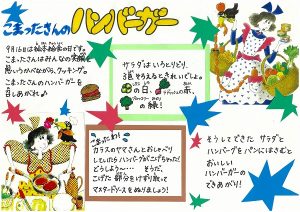 こまったさんの
ハンバーガー
9月16日は
こまったさんはみんなの笑顔を
思いうかべながら、クッキング。
こまったさんのハンバーガーを
召しあがれ♪
サラダはいろとりどり。
3色そろえるときれいでしょ。
の白、
の赤、
の緑!
こまったわ!
カラスのヤマさんとおしゃべり
してしたらハンバーグがこげちゃった!
どうしよう〜… そうだ、
こげた部分をけずり取って
マスタードソースをぬりましょう!
そうしてできた サラダと
ハンバーグをパンにはさむと
おいしい
ハンバーガーの
できあがり!